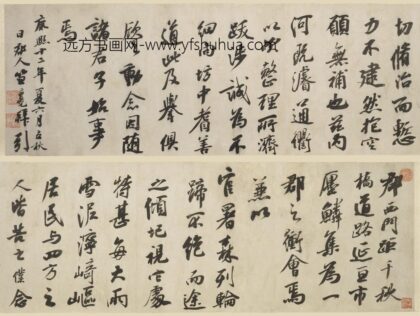 远方书画网-www.yfshuhua.com
切脩治而慙
力不逮然托空
願無補也茲內
河既濬通衢
以次整理所濟
跋涉誠為不
細閭坊中耆善
道此及舉俱
欣動念因隨
諸君子始事
焉
康熙十二年夏六月立秋
日郡人笪重光拜引
郡西門距千秋
橋道路延亘市
廛鱗集為一
郡之衝會焉
兼以
官署森列輪
蹄不絕而途
之傾圮視它處
特甚每大雨
雪泥濘崎嶇
居民與四方之
人皆苦之僕念